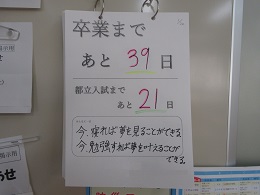 卒業まで
あと 39 日
都立入試まで
あと 21 日
今、寝れば夢を見ることができる
今、勉強すれば夢を叶えることが
できる。